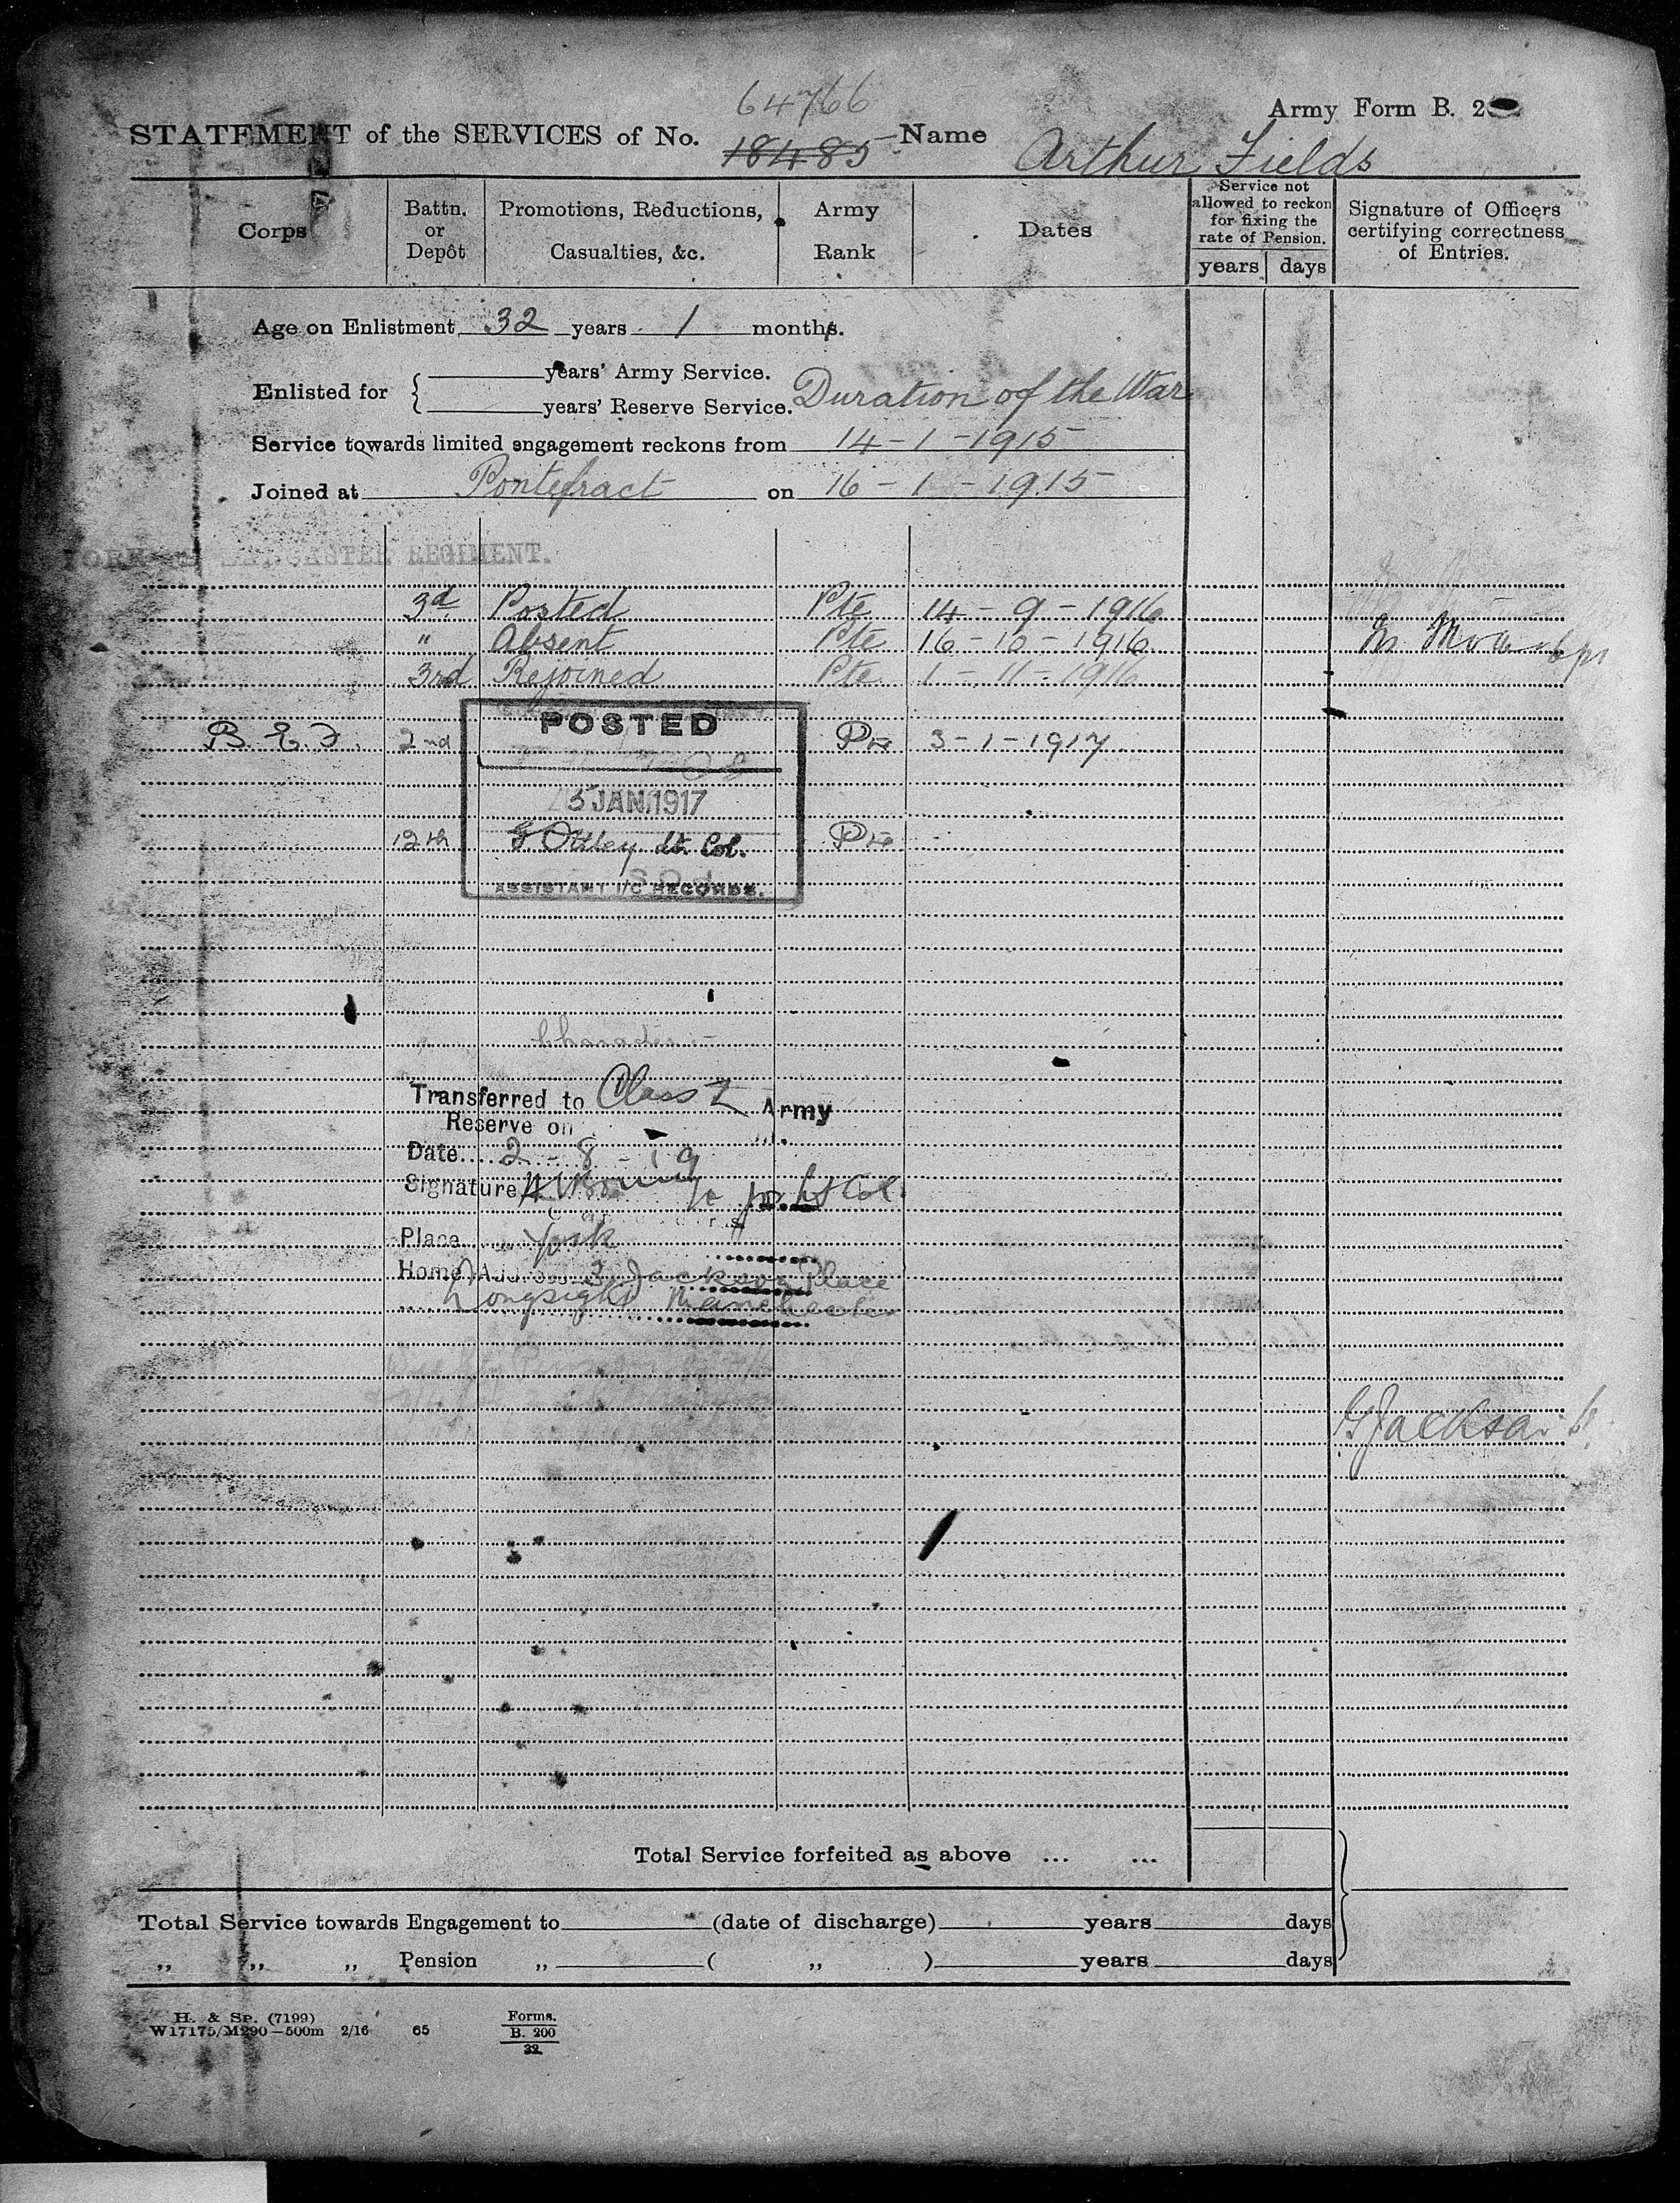 64766
Army Form B. 2
STATEMENT of the SERVICES of No. 18485 Name Arthur Fields
Corps
Battn. or Depôt
Promotions, Reductions, Casualties, &c.
Army Rank
Dates
Service not allowed to reckon for fixing the rate of Pension.
years days
Signature of Officers certifying correctness of Entries.
Age on Enlistment 32 years 1 months.
Enlisted for
years' Army Service.
years' Reserve Service. Duration of the War
Service towards limited engagement reckons from 14-1-1915
Joined at Pontefract on 16-1-1915
YORK LANCASTER REGIMENT.
3d Posted Pte 14-9-1916
" Absent Pte 16-10-1916
3rd Rejoined Pte 1-11-1916
POSTED
B.E.F. 2nd Pte 3-1-1917
5 JAN 1917
12th Ottley Lt. Col. Pte
ASSISTANT I/C RECORDS.
Character:-
Transferred to Class Z Army
Reserve on
Date 2-8-19
Signature for Lt Col.
Place York
Home Address 3, Jackson Place
Longsight Manchester
GJackson
Total Service forfeited as above ... ...
Total Service towards Engagement to (date of discharge) years days
„ „ „ Pension „ ( „ ) years days
H. & Sp. (7199)
W17175/M290—500m 2/16 65
Forms.
B. 200
32